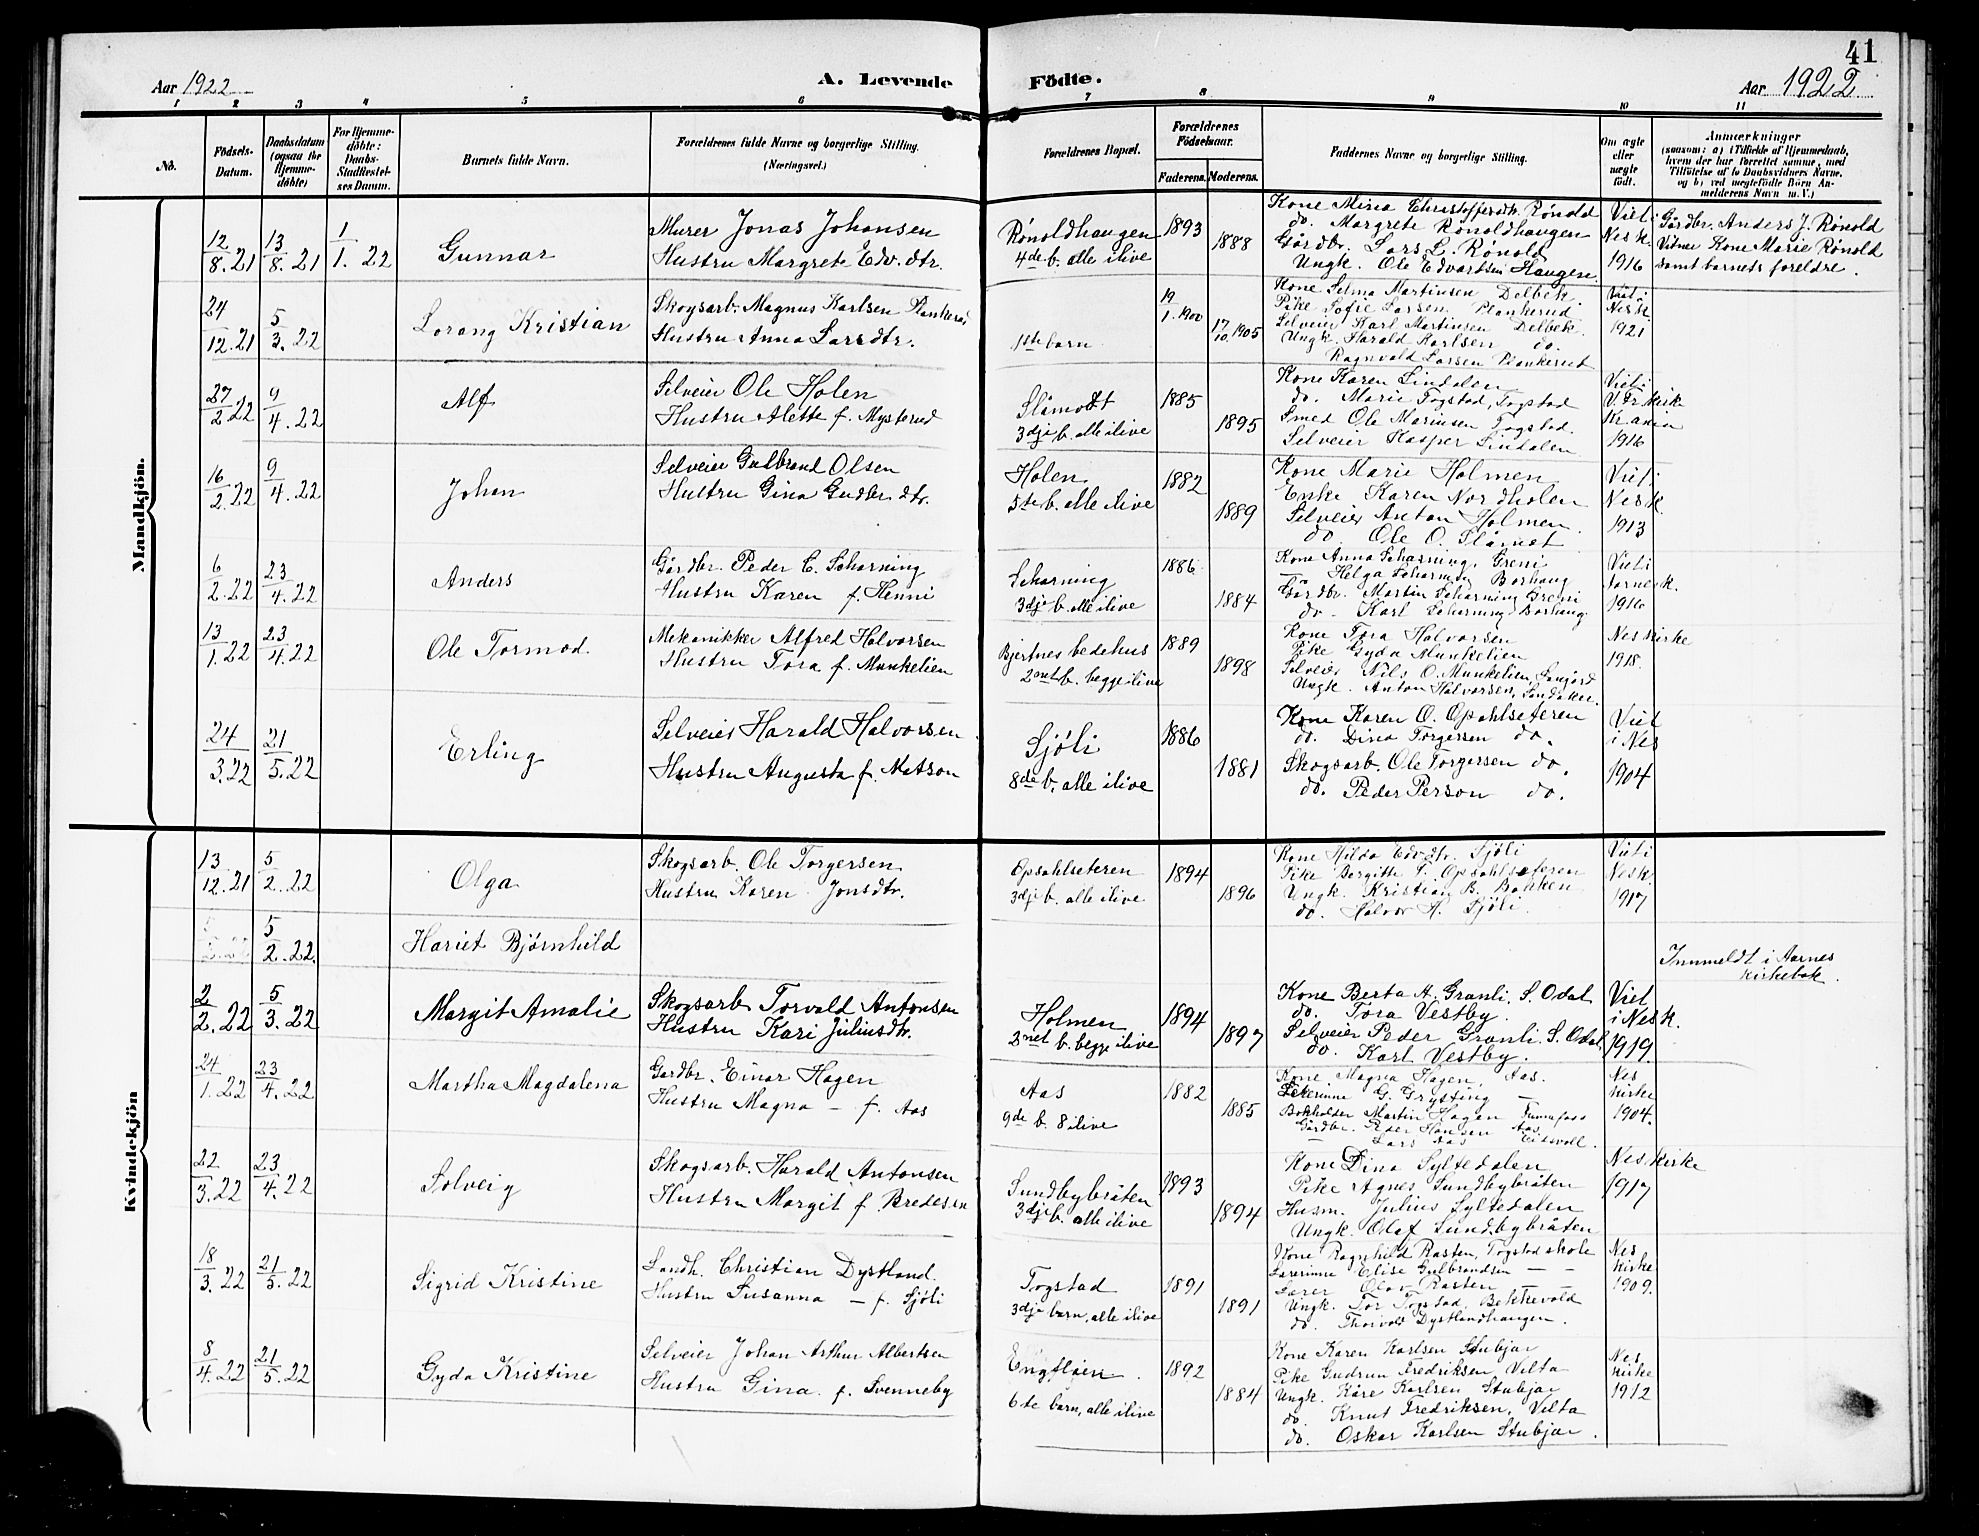 41
Aar 1922
A. Levende Födte.
Aar 1922
1 2 3 4 5 6 7 8 9 10 11
No.
Födsels-Datum.
Daabsdatum (ogsaa for Hjemme-döbte)
For Hjemme-döbte: Daabs-Stadfestel-ses Datum.
Barnets fulde Navn.
Forældrenes fulde Navne og borgerlige Stilling. (Næringsvei.)
Forældrenes Bopæl.
Forældrenes Födselsaar.
Faderens. Moderens.
Faddernes Navne og borgerlige Stilling.
Om ægte eller uægte födt.
Anmærkninger
(saasom: a) i Tilfælde af Hjemmedaab, hvem der har forrettet samme, med Tilföielse af to Daabsvidners Navne, og b) ved uægtefödte Börn Anmelderens Navn m. V.)
Mandkjön.
12/8.21 13/8.21 1/1.22
Gunnar
Murer Jonas Johansen
Hustru Margrete Edv.dtr.
Rönoldhaugen
4de b. alle ilive
1893 1888
Kone Mina Christoffersdtr. Rönold
do. Margrete Rönoldhaugen
Gårdbr. Lars L. Rönold
Ungk. Ole Edvartsen Haugen
Viet i
Nes k.
1916
Gårdbr. Anders J. Rönold
Vitne Kone Marie Rönold
samt barnets foreldre.
24/12.21 5/3.22
Lorang Kristian
Skogsarb. Magnus Karlsen Plankerud
Hustru Anna Larsdtr.
1ste barn
19/1.1900 17/10.1905
Kone Selma Martinsen Delbek
Pike Sofie Larsen Plankerud
Selveier Karl Martinsen Delbek
Ungk. Harald Karlsen do.
Ragnvald Larsen Plankerud
Viet i
Nes k
1921
27/2 22 9/4.22
Alf
Selveier Ole Holen
Hustru Alette f. Mysterud
Slåmodt
3dje b. alle ilive
1885 1895
Kone Karen Lindalen
do. Marie Fogstad, Fogstad
Smed Ole Marinsen Fogstad.
Selveier Kasper Lindalen
Viet i
V. Fr. kirke
Kr.ania
1916
16/2.22 9/4.22
Johan
Selveier Gulbrand Olsen
Hustru Gina Gudbr.dtr.
Holen
5te b. alle ilive
1882 1889
Kone Marie Holmen
Enke Karen Nordholen
Selveier Anton Holmen
do Ole O. Slåmot
Viet i
Nes k.
1913
6/2.22 23/4.22
Anders
Gårdbr. Peder C. Scharning
Hustru Karen f. Henni
Scharning
3dje b. alle ilive
1886 1884
Kone Anna Scharning, Greni
— Helga Scharning Borhaug
Gårdbr. Martin Scharning Greni
do. Karl Scharning, Borhaug
Viet i
Aarnes k.
1916
13/1.22 23/4.22
Ole Tormod.
Mekanikker Alfred Halvorsen
Hustru Tora f. Munkelien
Bjertnes bedehus
2net b. begge ilive
1889 1898
Kone Tora Halvorsen
Pike Gyda Munkelien
Selveier Nils O. Munkelien,
Ungk. Anton Halvorsen, Sandaker.
Nes kirke
1918.
24/3.22 21/5.22
Erling
Selveier Harald Halvorsen
Hustru Augusta f. Matson
Sjöli
8de b. alle ilive
1886 1881
Kone Karen O. Opahlseteren
do. Dina Torgersen do.
Skogsarb. Ole Torgersen do.
do. Peder Person do.
Viet
i Nes
1904
Kvindekjön
13/12.21 5/2.22
Olga
Skogsarb. Ole Torgersen
Hustru Karen Jonsdtr.
Opsahlseteren
3dje b. alle ilive
1894 1896
Kone Hilda Edvdtr. Sjöli
Pike Bergitte T. Opsahlseteren
Ungk. Kristian B. Bakken
do. Halvor H. Sjöli
Viet i
Nes k
1917
5/2.22
Hariet Bjørnhild
Innmeldt i Aarnes
kirkebok.
2/2.22 5/3.22
Margit Amalie
Skogsarb Torvald Antonsen
Hustru Kari Juliusdtr.
Holmen
2net b. begge ilive
1894 1897
Kone Berta A. Granli, S. Odal
do. Tora Vestby.
Selveier Peder Granli. S. Odal
do. Karl Vestby.
Viet
i Nes k.
1919.
24/1.22 23/4.22
Martha Magdalena
Gardbr. Einar Hagen
Hustru Magna — f. Aas
Aas
9de b. 8 ilive
1882 1885
Kone Magna Hagen, Aas.
Lererinne G. Grysting —
Bokholder Martin Hagen
Gårdbr. Peder Hansen Aas
— Lars Aas Eidsvoll.
Nes
kirke
1904.
22/3.22 23/4.22
Solveig
Skogsarb. Harald Antonsen
Hustru Margit f. Bredesen
Sundbybråten
3dje b. alle ilive
1893 1894
Kone Dina Syltedalen
Pike Agnes Sundbybråten
Husm. Julius Syltedalen
Ungk. Olaf Sundbybråten
Nes kirke
1917
18/3.22 21/5.22
Sigrid Kristine
Landh. Christian Dystland.
Hustru Susanna — f. Sjöli
Fogstad
3dje barn, alle ilive
1891 1891
Kone Ragnhild Rasten, Fogstad skole
Lærerinne Elise Gulbrandsen — —
Lærer Olav Rasten — —
Ungk. Tor Fogstad, Bekkevold
do. Thorvald Dystlandhaugen.
Nes
kirke
1909.
8/4.22 21/5.22
Gyda Kristine
Selveier Johan Arthur Albertsen
Hustru Gina f. Svenneby
Engfloen.
6te barn, alle ilive
1892 1884
Kone Karen Karlsen Stubjar
Pike Gudrun Fredriksen, Vilta
Ungk. Kåre Karlsen Stubjar
do. Knut Fredriksen, Vilta
do. Oskar Karlsen Stubjar.
Nes
kirke
1912